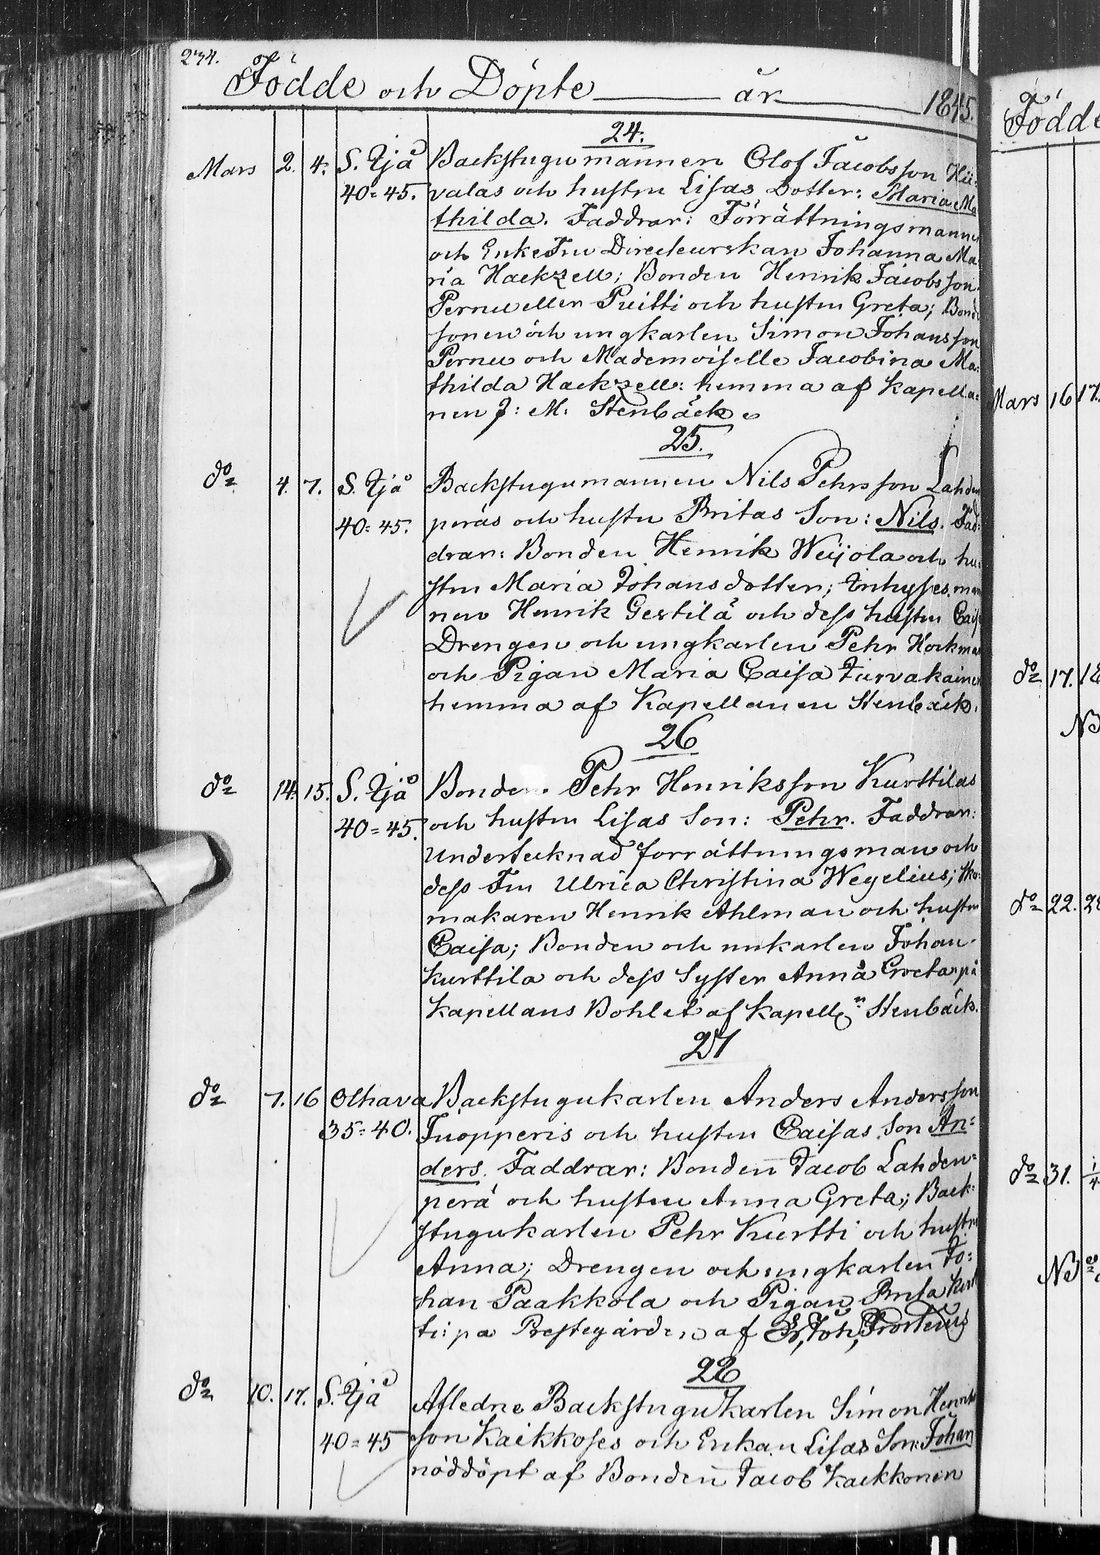 234.
Födde och Döpte år 1845.
24.
Mars 2. 4. S. Ijå Backstugumannen Olof Jacobsson Hii-
40=45. valas och hustru Lisas Dotter: Maria Ma
thilda. Faddrar: Förrättningsmannen
och EnkeFru Directeurskan Johanna Ma
ria Hackzell; Bonden Henrik Jacobsson
Pernu eller Puitti och hustru Greta; Bond
sonen och ungkarlen Simon Johansson
Pernu och Mademoiselle Jacobina Ma-
thilda Hackzell: hemma af Kapella-
nen J: M: Stenbäck
25.
do 4. 7. S. Ijå Backstugumannen Nils Pehrsson Lahden
40=45. peräs och hustru Britas Son: Nils. Fad-
drar: Bonden Henrik Weijola och hu-
stru Maria Johansdotter; Inhysesman
nen Henrik Gestilä och dess hustru Caisa
Drengen och ungkarlen Pehr Hockman
och Pigan Maria Caisa Turvakainen
hemma af Kapellanen Stenbäck.
26
do 14. 15. S. Ijå Bonden Pehr Henriksson Kurttilas
40=45. och hustru Lisas Son: Pehr. Faddrar:
Undertecknad forrättningsman och
dess Fru Ulrica Christina Wegelius; Sko-
makaren Henrik Ahlman och hustru
Caisa; Bonden och unkarlen Johan
Kurttila och dess Syster Anna Greta, på
Kapellans Bohlet af Kapelln Stenbäck.
27
do 7. 16 Olhava Backstugukarlen Anders Andersson
35=40. Tuopperis och hustru Caisas Son An-
ders. Faddrar: Bonden Jacob Lahden-
perä och hustru Anna Greta; Back-
stugukarlen Pehr Kurtti och hustru
Anna; Drengen och ungkarlen Jo-
han Paakkola och Pigan Brita Kurt
ti: på Prestegården af
28
do 10. 17. S. Ijå Afledne Backstugukarlen Simon Henriks
40=45 son Kaikkoses och Enkan Lisas Son: Johan
nöddöpt af Bonden Jacob Kaikkonen
Födde
Mars 16 17.
do 17. 18
NB
do 22. 2
do 31. 1/4
NB